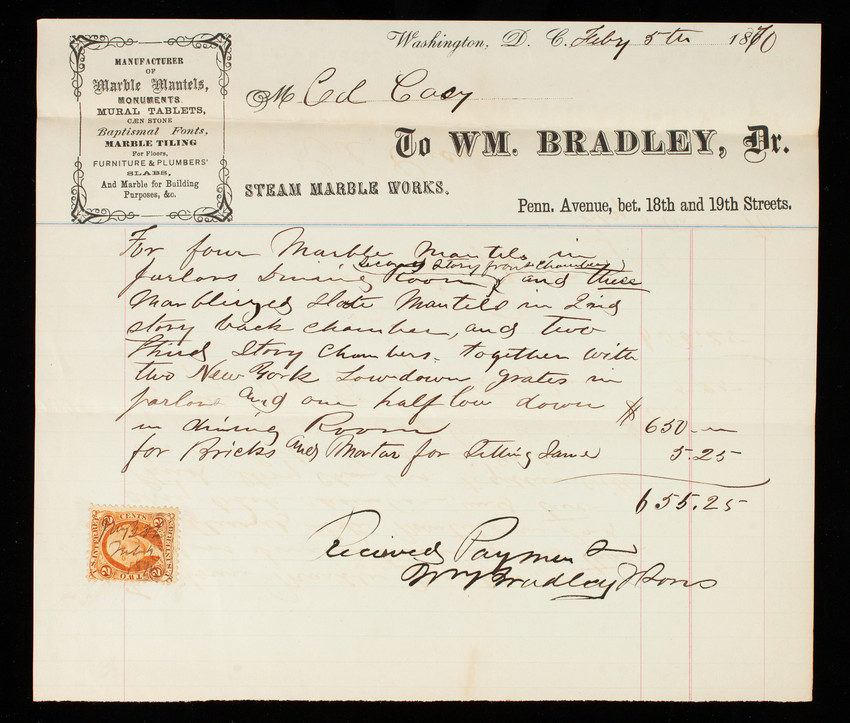 MANUFACTURER
OF
Marble Mantels,
MONUMENTS.
MURAL TABLETS,
CÆN STONE
Baptismal Fonts,
MARBLE TILING
For Floors,
FURNITURE & PLUMBERS'
SLABS,
And Marble for Building
Purposes, &c.
Washington, D. C. Feby 5th 1870
M Col Casy
To WM. BRADLEY, Dr.
STEAM MARBLE WORKS.
Penn. Avenue, bet. 18th and 19th Streets.
For four Marble Mantels in
second Story front Chamber
parlors Dining Room and three
Marbleized Slate Mantels in 2nd
story back chamber, and two
third Story Chambers. together with
two New York Low down grates in
parlors and one half low down
in dining Room $ 650.00
for Bricks and Mortar for Setting Same 5.25
655.25
Recieved Payment
Wm Bradley & Sons
U.S. INTER. REV.
2 CENTS 2
2 TWO 2